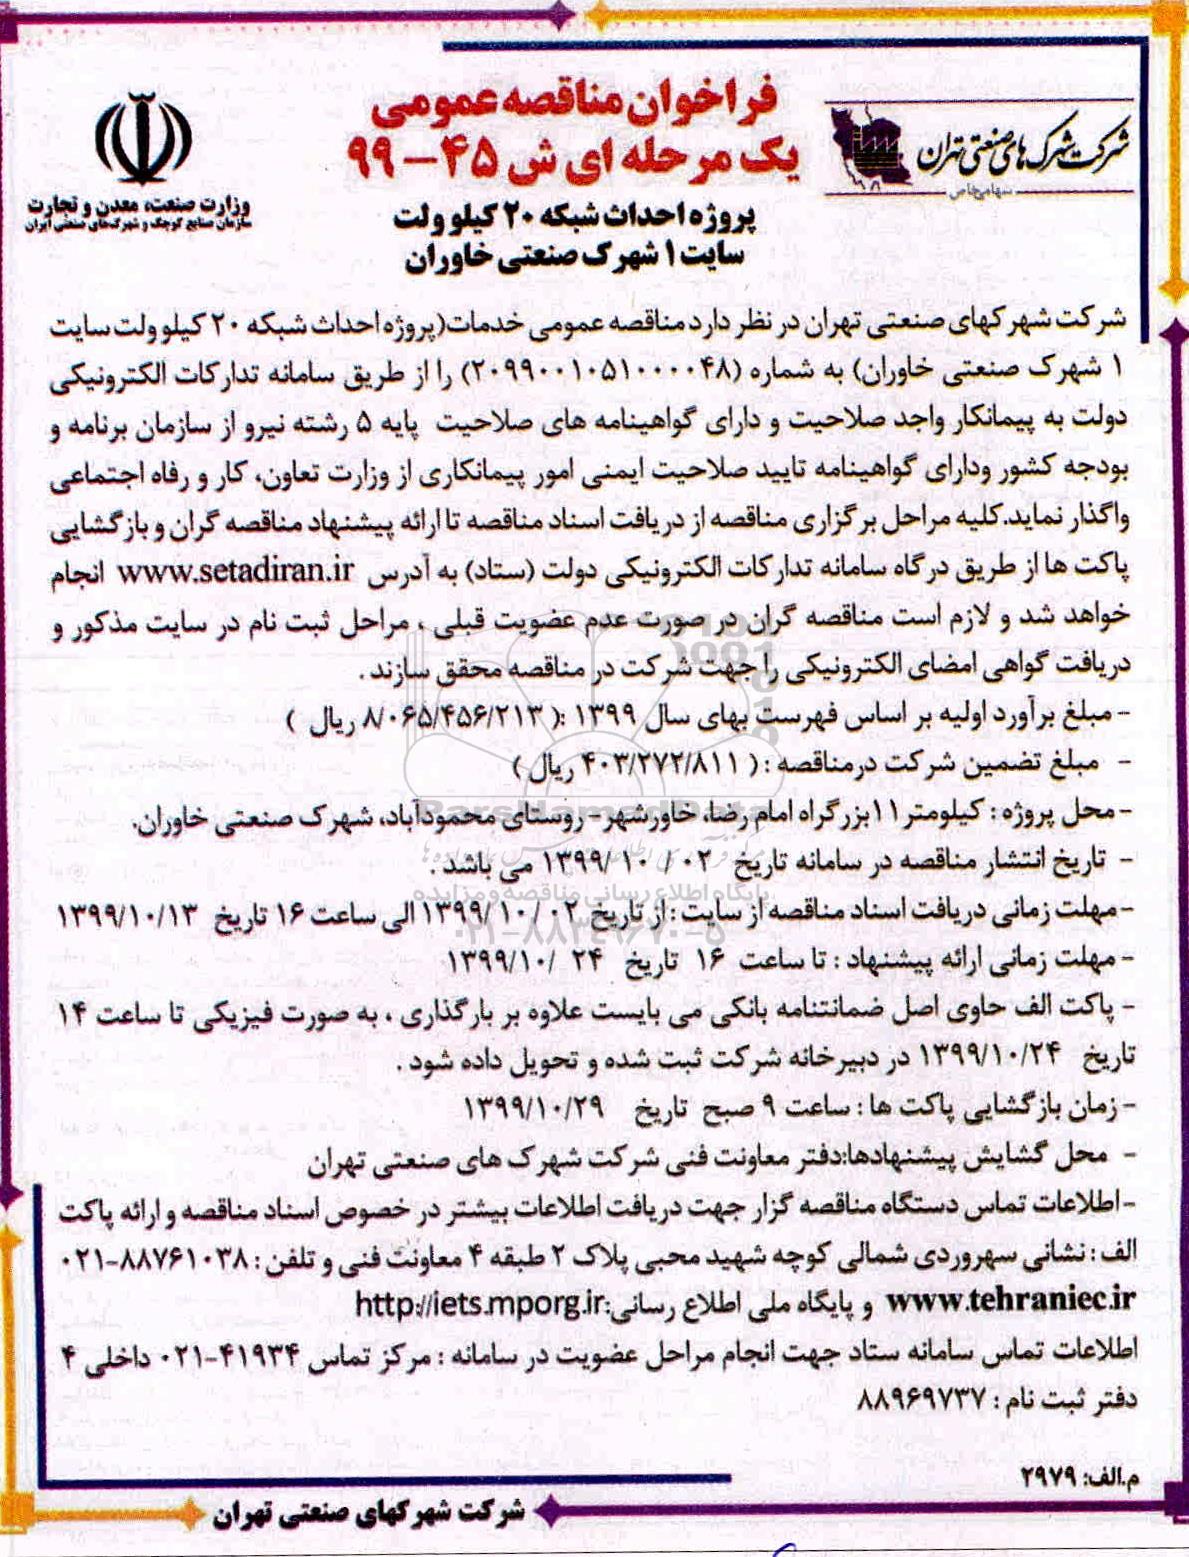 فراخوان مناقصه عمومی
یک مرحله ای ش ۴۵ – ۹۹
پروژه احداث شبکه ۲۰ کیلو ولت
سایت ۱ شهرک صنعتی خاوران
شرکت شهرک های صنعتی تهران
سهامی خاص
وزارت صنعت، معدن و تجارت
سازمان صنایع کوچک و شهرک‌های صنعتی ایران
شرکت شهرکهای صنعتی تهران در نظر دارد مناقصه عمومی خدمات(پروژه احداث شبکه ۲۰ کیلو ولت سایت
۱ شهرک صنعتی خاوران) به شماره (۲۰۹۹۰۰۱۰۵۱۰۰۰۰۴۸) را از طریق سامانه تدارکات الکترونیکی
دولت به پیمانکار واجد صلاحیت و دارای گواهینامه های صلاحیت پایه ۵ رشته نیرو از سازمان برنامه و
بودجه کشور ودارای گواهینامه تایید صلاحیت ایمنی امور پیمانکاری از وزارت تعاون، کار و رفاه اجتماعی
واگذار نماید.کلیه مراحل برگزاری مناقصه از دریافت اسناد مناقصه تا ارائه پیشنهاد مناقصه گران و بازگشایی
پاکت ها از طریق درگاه سامانه تدارکات الکترونیکی دولت (ستاد) به آدرس www.setadiran.ir انجام
خواهد شد و لازم است مناقصه گران در صورت عدم عضویت قبلی ، مراحل ثبت نام در سایت مذکور و
دریافت گواهی امضای الکترونیکی را جهت شرکت در مناقصه محقق سازند .
- مبلغ برآورد اولیه بر اساس فهرست بهای سال ۱۳۹۹ :( ۸/۰۶۵/۴۵۶/۲۱۳ ریال )
- مبلغ تضمین شرکت درمناقصه : ( ۴۰۳/۲۷۲/۸۱۱ ریال )
- محل پروژه : کیلومتر ۱۱بزرگراه امام رضا، خاورشهر- روستای محمودآباد، شهرک صنعتی خاوران.
- تاریخ انتشار مناقصه در سامانه تاریخ ۰۲ /۱۳۹۹/۱۰ می باشد .
- مهلت زمانی دریافت اسناد مناقصه از سایت : از تاریخ ۰۲ /۱۳۹۹/۱۰ الی ساعت ۱۶ تاریخ ۱۳۹۹/۱۰/۱۳
- مهلت زمانی ارائه پیشنهاد : تا ساعت ۱۶ تاریخ ۲۴ /۱۳۹۹/۱۰
- پاکت الف حاوی اصل ضمانتنامه بانکی می بایست علاوه بر بارگذاری ، به صورت فیزیکی تا ساعت ۱۴
تاریخ ۱۳۹۹/۱۰/۲۴ در دبیرخانه شرکت ثبت شده و تحویل داده شود .
- زمان بازگشایی پاکت ها : ساعت ۹ صبح تاریخ ۱۳۹۹/۱۰/۲۹
- محل گشایش پیشنهادها:دفتر معاونت فنی شرکت شهرک های صنعتی تهران
-اطلاعات تماس دستگاه مناقصه گزار جهت دریافت اطلاعات بیشتر در خصوص اسناد مناقصه و ارائه پاکت
الف : نشانی سهروردی شمالی کوچه شهید محبی پلاک ۲ طبقه ۴ معاونت فنی و تلفن : ۸۸۷۶۱۰۳۸-۰۲۱
www.tehraniec.ir و پایگاه ملی اطلاع رسانی:http://iets.mporg.ir
اطلاعات تماس سامانه ستاد جهت انجام مراحل عضویت در سامانه : مرکز تماس ۴۱۹۳۴-۰۲۱ داخلی ۴
دفتر ثبت نام : ۸۸۹۶۹۷۳۷
م.الف: ۲۹۷۹
شرکت شهرکهای صنعتی تهران
ParsNamadData
پایگاه اطلاع رسانی مناقصه و مزایده
۰۲۱-۸۸۳۴۹۶۷۰-۵